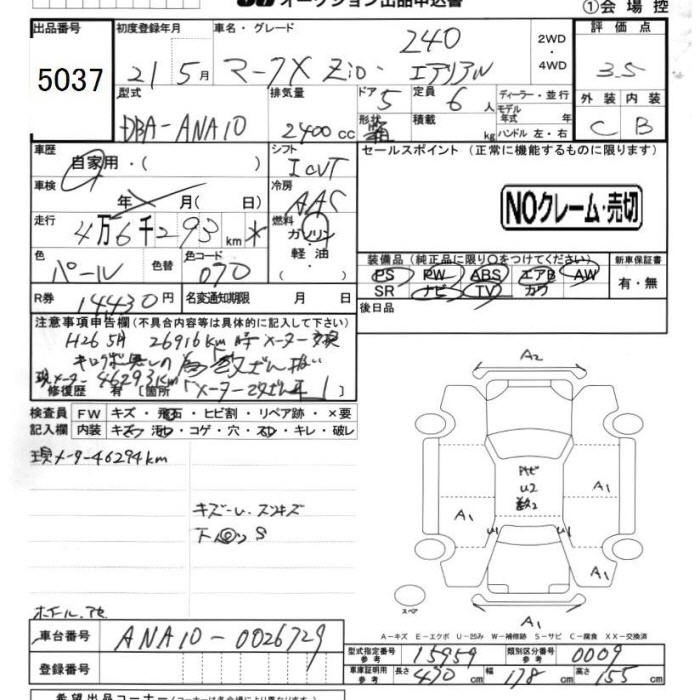 オークション出品申込書
①会場控
出品番号 初度登録年月 車名・グレード 2WD・4WD 評価点
5037 21 5月 マークX Zio・エアリアル 240 3.5
型式 排気量 ドア 5 定員 6人 ディーラー・並行 外装 内装
DBA-ANA10 2400cc 形状 積載 kg モデル年式 年 ハンドル 左・右 C B
車歴 シフト セールスポイント (正常に機能するものに限ります)
自家用・( ) I CVT
車検 冷房
年 月( 日) AAC NOクレーム・売切
走行 燃料
4万6千293km* ガソリン・軽油・( )
色 色替 色コード 装備品 (純正品に限り○をつけてください) 新車保証書
パール 070 PS PW ABS エアB AW 有・無
R券 14,430円 名変通知期限 月 日 SR ナビ TV カワ
後日品
注意事項申告欄(不具合内容等は具体的に記入して下さい)
H26 5月 26916km時 メーター交換
現メーター46293km
修復歴 有 [箇所
検査員記入欄 FW キズ・飛石・ヒビ割・リペア跡・×要
内装 キズ・汚れ・コゲ・穴・スレ・キレ・破レ
現メーター46294km
A2
A1
U2
A1
A1
A1
A1
スペア
A-キズ E-エクボ U-凹み W-補修跡 S-サビ C-腐食 XX-交換済
車台番号 ANA10-0026729
型式指定番号 参考 15959 類別区分番号 参考 0009
登録番号
車庫証明用 参考 長さ 470cm 幅 178cm 高さ 155cm
希望出品コーナー